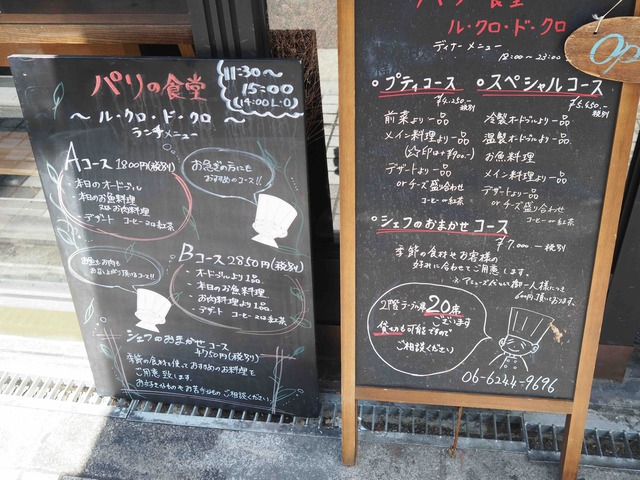 パリの食堂
11:30〜
15:00
(14:00 L.O)
〜ル・クロ・ド・クロ〜
ランチメニュー
Aコース 1800円(税別)
・本日のオードブル
・本日のお魚料理
又はお肉料理
・デザート コーヒー又は紅茶
お急ぎの方にも
おすすめのコース!!
Bコース 2850円(税別)
・オードブルより1品
・本日のお魚料理
・お肉料理より1品
・デザート
コーヒー又は紅茶
お魚もお肉も
お召し上がり頂けるコース!!
シェフのおまかせコース
4750円(税別)
季節の食材を使っておすすめのお料理を
ご用意致します。
お好きなものやお苦手なもの ご相談ください。
パリの食堂
ル・クロ・ド・クロ
ディナーメニュー
18:00〜23:00
・プティコース
¥4.250.-税別
前菜より一品
メイン料理より一品
(☆印は+¥900.-)
デザートより一品
orチーズ盛り合わせ
コーヒー or 紅茶
・スペシャルコース
¥5.650.-税別
冷製オードブルより一品
温製オードブルより一品
お魚料理
メイン料理より一品
デザートより一品
orチーズ盛り合わせ
コーヒー or 紅茶
・シェフのおまかせコース
¥7.000.-税別
季節の食材やお客様の
お好みに合わせてご用意します。
2階テーブル席20席
ございます
貸切も可能ですので
ご相談ください
06-6244-9696